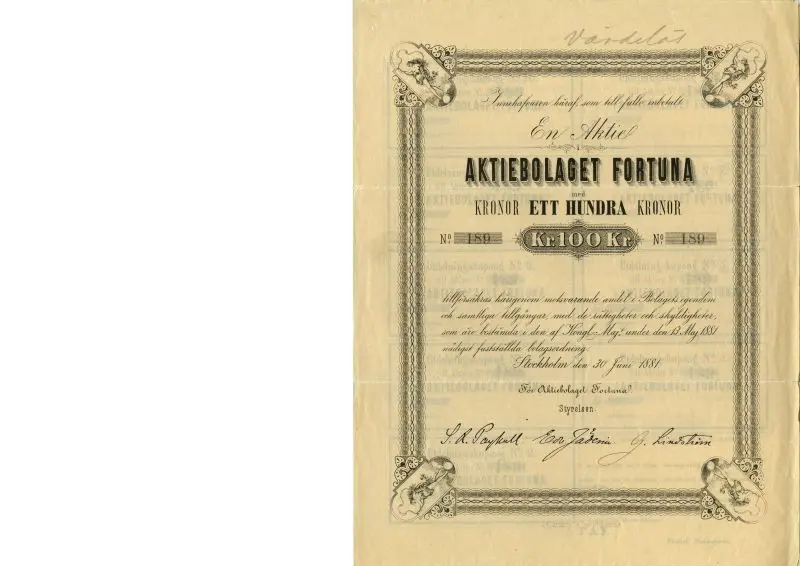 Värdelös
Innehafvaren häraf, som till fullo inbetalt
En Aktie
i
AKTIEBOLAGET FORTUNA
med
KRONOR ETT HUNDRA KRONOR
No. 189 Kr. 100 Kr No. 189
tillförsäkras härigenom motsvarande andel i Bolagets egendom
och samtliga tillgångar, med de rättigheter och skyldigheter,
som äro bestämda i den af Kongl. Maj:t under den 13 Maj 1881
nådigst fastställda bolagsordning.
Stockholm den 30 Juni 1881.
För Aktiebolaget Fortuna.
Styrelsen
G. Lindström